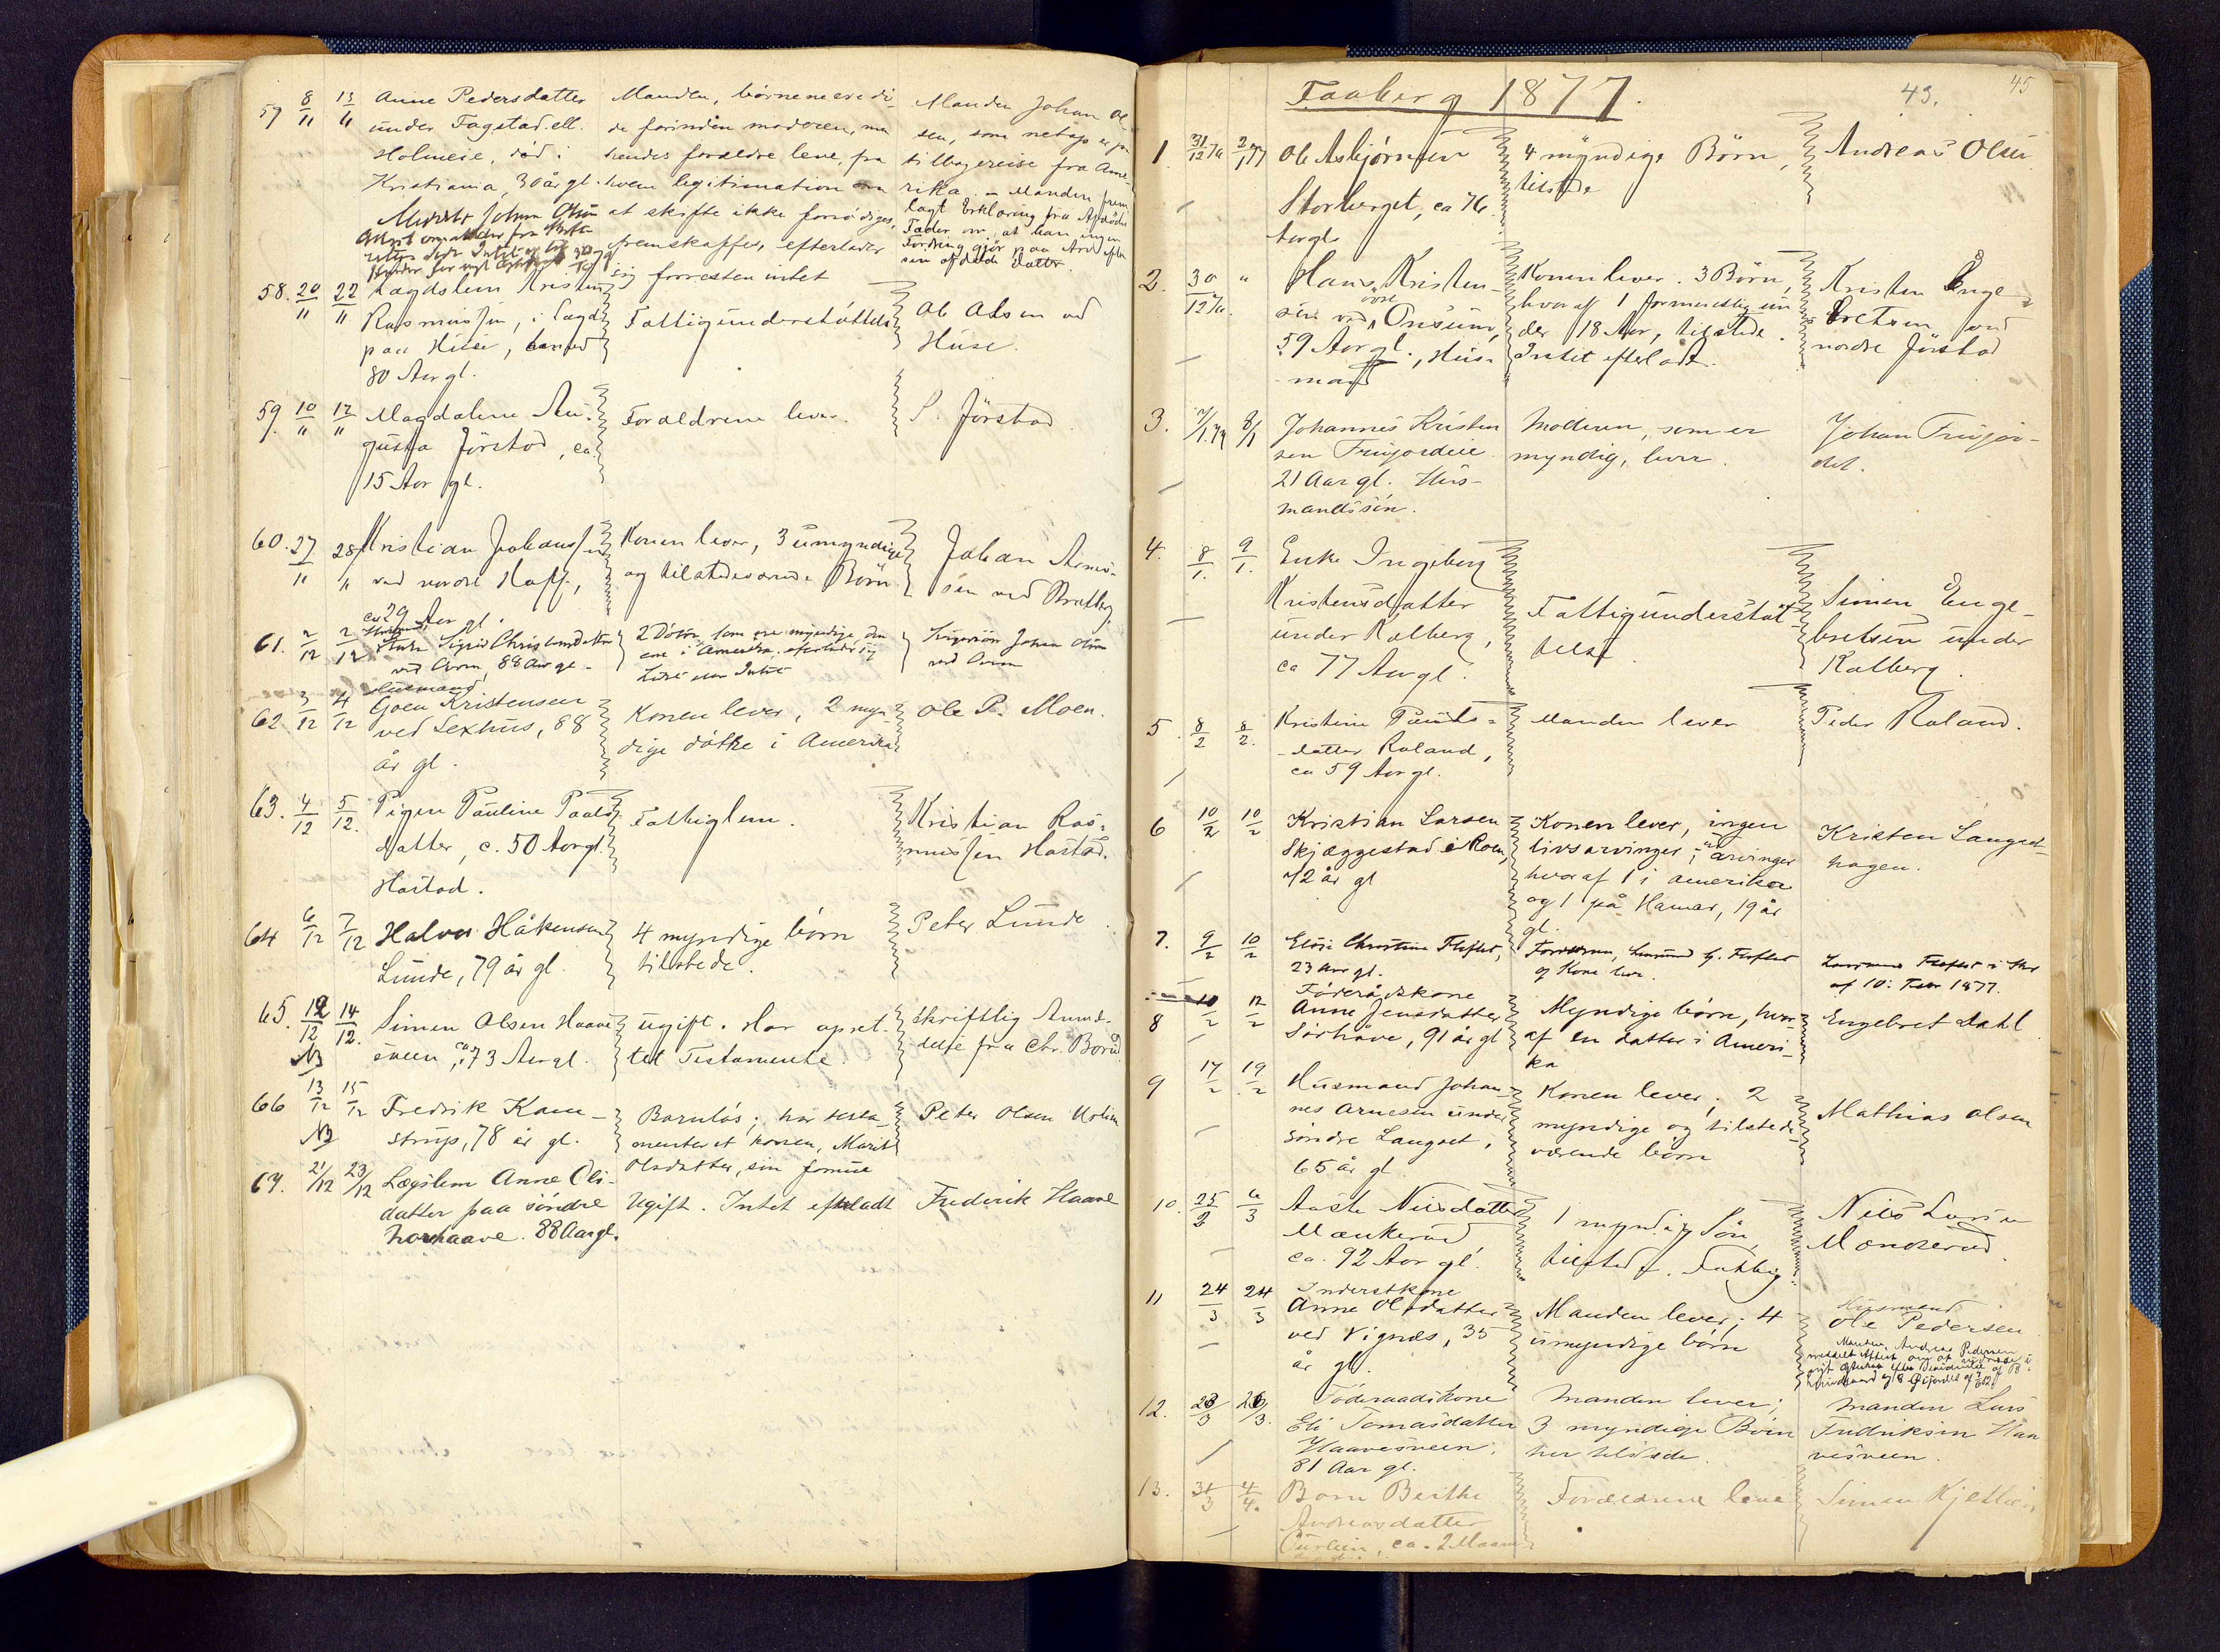 57 8/11 13/11 Anne Pedersdatter
under Fagstad ell.
Holmeie, död i
Kristiania, 30 år gl.
Manden, börnene ere dö-
de forinden moderen, men
hendes forældre leve, fra
hvem legitimation om
at skifte ikke fornödiges,
fremskaffes, efterlader
sig forresten intet
Manden Johan Ol-
sen, som netop er på
tilbagereise fra Ame-
rika. - Manden frem
lagt Erklæring fra Afdödes
Fader om, at han ingen
Fordring gjör paa Arv efter
sin afdøde datter.
58. 20/11 22/11 Lægdslem Kristen
Rasmussen, i Lægd
paa Huse,
80 Aar gl.
Fattigunderstöttelse
Ole Olsen ved
Huse.
59. 10/11 17/11 Magdalene Au-
gusta Jörstad, ca.
15 Aar gl.
Forældrene lever.
P. Jörstad
60. 27/11 28/11 Kristian Johansen
ved nordre Hoff,
ca 29 Aar gl.
Konen lever, 3 umyndige
og tilstedeværende Börn
Johan Arne-
sen ved Bratberg
61. 2/12 2/12 Enke Sigrid Christensdatter
ved Aaen, 88 Aar gl.
2 Döttre, som ere myndige, den
ene i Amerika. efterlader sig
Lidet eller Intet
Svigersön Johan Olsen
ved Aaen
62 3/12 4/12 Husmand
Goen Kristensen
ved Sexhus, 88
år gl.
Konen lever, 2 myn-
dige döttre i Amerika
Ole P. Moen.
63. 4/12 5/12. Pigen Pauline Pauls-
datter, c. 50 Aar gl.
Hastad.
Fattiglem.
Kristian Ras-
mussen Hastad.
64 6/12 7/12 Halvor Håkensen
Lunde, 79 år gl.
4 myndige börn
tilstede.
Peter Lunde
65. 12/12 14/12. Simen Olsen Haave
sveen, ca 73 Aar gl.
NB
ugift. Har opret-
tet Testamente.
skriftlig Anmel-
delse fra Chr. Borud
66 13/12 15/12 Fredrik Kam-
strup, 78 år gl.
NB
Barnlös; har testa-
menteret konen, Marit
Olsdatter, sin formue
Peter Olsen Molin
67. 21/12 23/12 Lægslem Anne Ols-
datter paa söndre
Norhaave. 88 Aar gl.
Ugift. Intet efterladt
Frederik Haave
Faaberg 1877.
43.
45
1 31/12 76 2/1 77 Ole Asbjörnsen
Storberget, ca 76
Aar gl.
4 myndige Börn,
tilstede
Andreas Olsen
2. 30/12 76. " Hans Kristen-
sen ved övre Onsum,
59 Aar gl., Hus-
mand
Konen lever. 3 Börn,
hvoraf 1 formentlig un
der 18 Aar, tilstede.
Intet efterladt.
Kristen Enge-
bretsen ved
nordre Jörstad
3. 7/1 77 8/1 Johannes Kristen
sen Trujordeie
21 Aar gl. Hus-
mandssön.
Moderen, som er
myndig, lever.
Johan Trujor-
det.
4. 8/1. 9/1. Enke Ingeborg
Kristensdatter
under Kalberg,
ca 77 Aar gl.
Fattigunderstöt-
telse.
Simen Enge-
bretsen under
Kalberg.
5. 8/2 8/2. Kristine Pauls-
datter Roland,
ca 59 Aar gl.
Manden lever
Peder Roland.
6 10/2 10/2 Kristian Larsen
Skjæggestad i Roen,
72 år gl
Konen lever, ingen
livsarvinger; arvinger
hvoraf 1 i Amerika
og 1 på Hamar, 19 år
gl.
Kristen Langset-
hagen.
7. 9/2 10/2 Elise Christine Fliflet,
23 Aar gl.
Forældrene, Gmd G. Fliflet
og Kone lever.
af 10: Febr 1877.
8 10/2 12/2 Föderådskone
Anne Jensdatter
Sörhåve, 91 år gl
Myndige börn, hvor-
af en datter i Ameri-
ka
Engebret Dahl
9 17/2 19/2 Husmand Johan-
nes Arnesen under
söndre Langset,
65 år gl
Konen lever; 2
myndige og tilstede-
værende börn
Mathias Olsen
10. 25/2 6/3 Aaste Nilsdatter
Mænkerud
ca. 92 Aar gl.
1 myndig Sön,
tilstede. Fattig.
Nils Larsen
Mænkerud.
11 24/3 24/3 Inderstkone
Anne Olsdatter
ved Vignæs, 35
år gl.
Manden lever; 4
umyndige börn
Husmand
Ole Pedersen
Manden, Andreas Pedersen
12. 23/3 26/3. Föderaadskone
Eli Tomasdatter
Haavesveen,
81 Aar gl.
Manden lever;
3 myndige Börn
her tilstede.
Manden Lars
Fredriksen Haa
vesveen.
13. 31/3 4/4. Barn Berthe
Andreasdatter
ca. 2 Maan
Forældrene leve
Simen Kjetlien